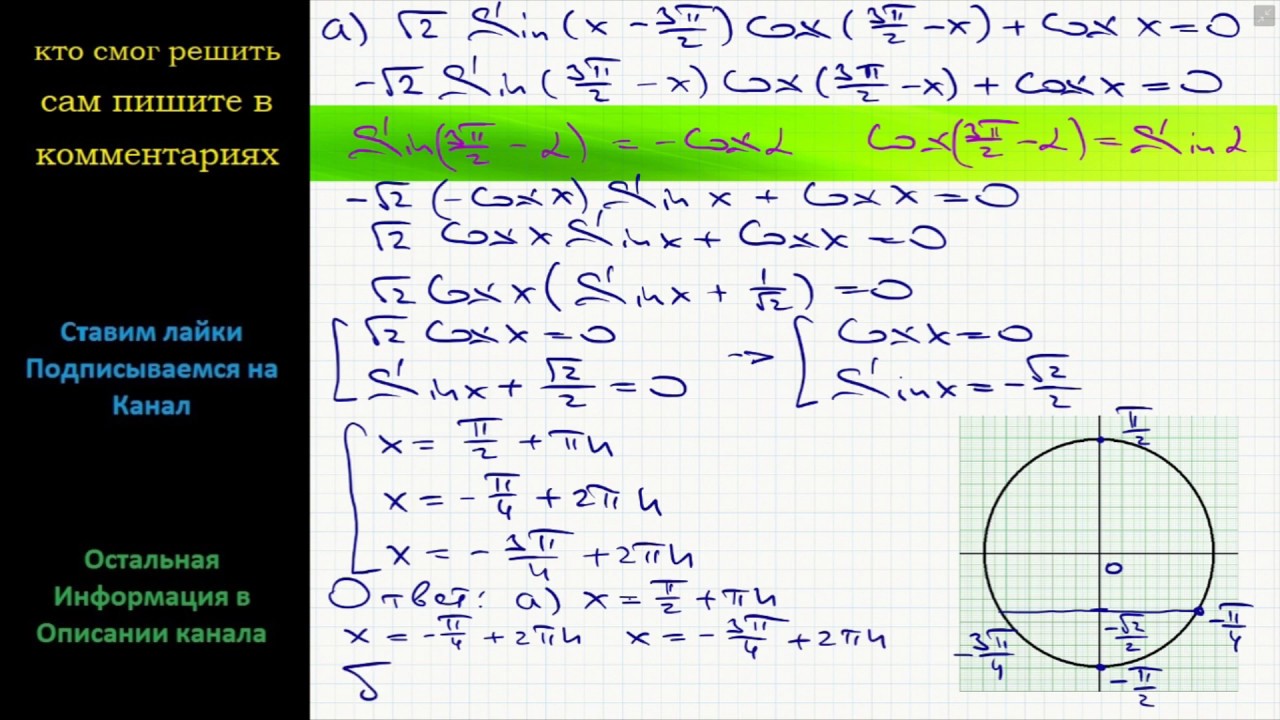 кто смог решить
сам пишите в
комментариях
Ставим лайки
Подписываемся на
Канал
Остальная
Информация в
Описании канала
а) √2 Sin(x - 3π/2) Cos(3π/2 - x) + Cos x = 0
-√2 Sin(3π/2 - x) Cos(3π/2 - x) + Cos x = 0
Sin(3π/2 - α) = -Cos α Cos(3π/2 - α) = Sin α
-√2 (-Cos x) Sin x + Cos x = 0
√2 Cos x Sin x + Cos x = 0
√2 Cos x (Sin x + 1/√2) = 0
[ √2 Cos x = 0 → [ Cos x = 0
Sin x + √2/2 = 0 Sin x = -√2/2
[ x = π/2 + πn
x = -π/4 + 2πn
x = -3π/4 + 2πn
Ответ: а) x = π/2 + πn
x = -π/4 + 2πn x = -3π/4 + 2πn
б
π/2
0
-√2/2
-π/4
-3π/4
-π/2